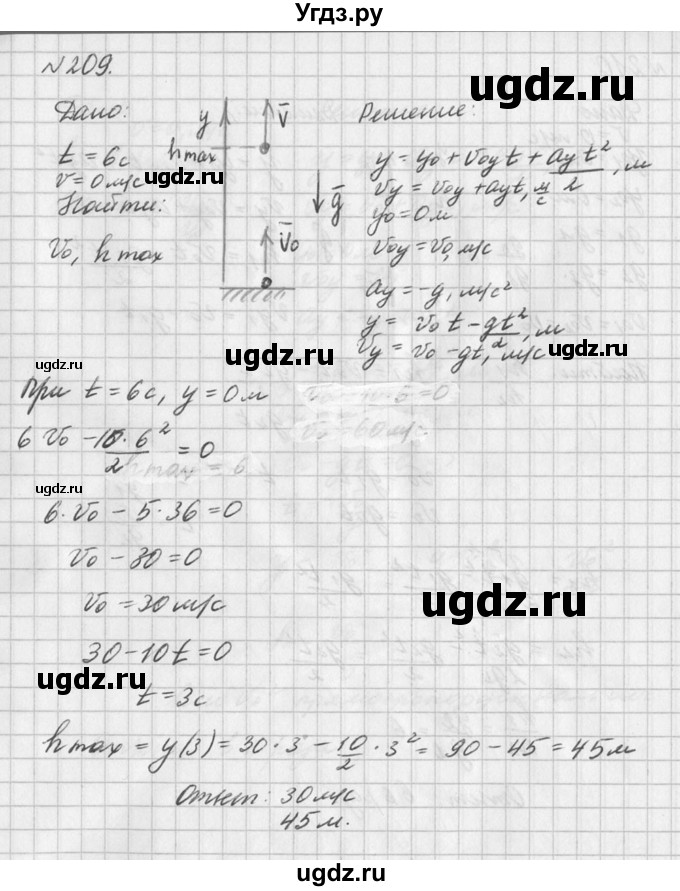 Угдз.ру
№209.
ugdz.ru
Дано:
t = 6с
v = 0 м/с
Найти:
v₀, h max
y
hmax
v̄
ḡ
v̄₀
Решение:
y = y₀ + v₀y t + ayt²/2, м
vy = v₀y + ayt, м/с
y₀ = 0 м
v₀y = v₀, м/с
ay = -g, м/с²
y = v₀t - gt²/2, м
vy = v₀ - gt, м/с
ugdz.ru
ugdz.ru
ugdz.ru
При t = 6с, y = 0 м
6 v₀ - 10·6²/2 = 0
ugdz.ru
6·v₀ - 5·36 = 0
v₀ - 30 = 0
v₀ = 30 м/с
ugdz.ru
30 - 10t = 0
ugdz.ru
t = 3с
h max = y(3) = 30·3 - 10/2·3² = 90 - 45 = 45 м
Ответ: 30 м/с
45 м.
ugdz.ru
ugdz.ru